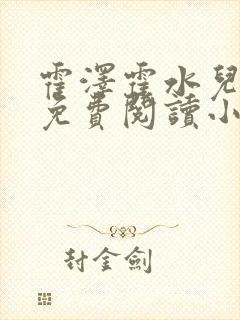 霍澤霍水兒
免費閱讀小
封金劍